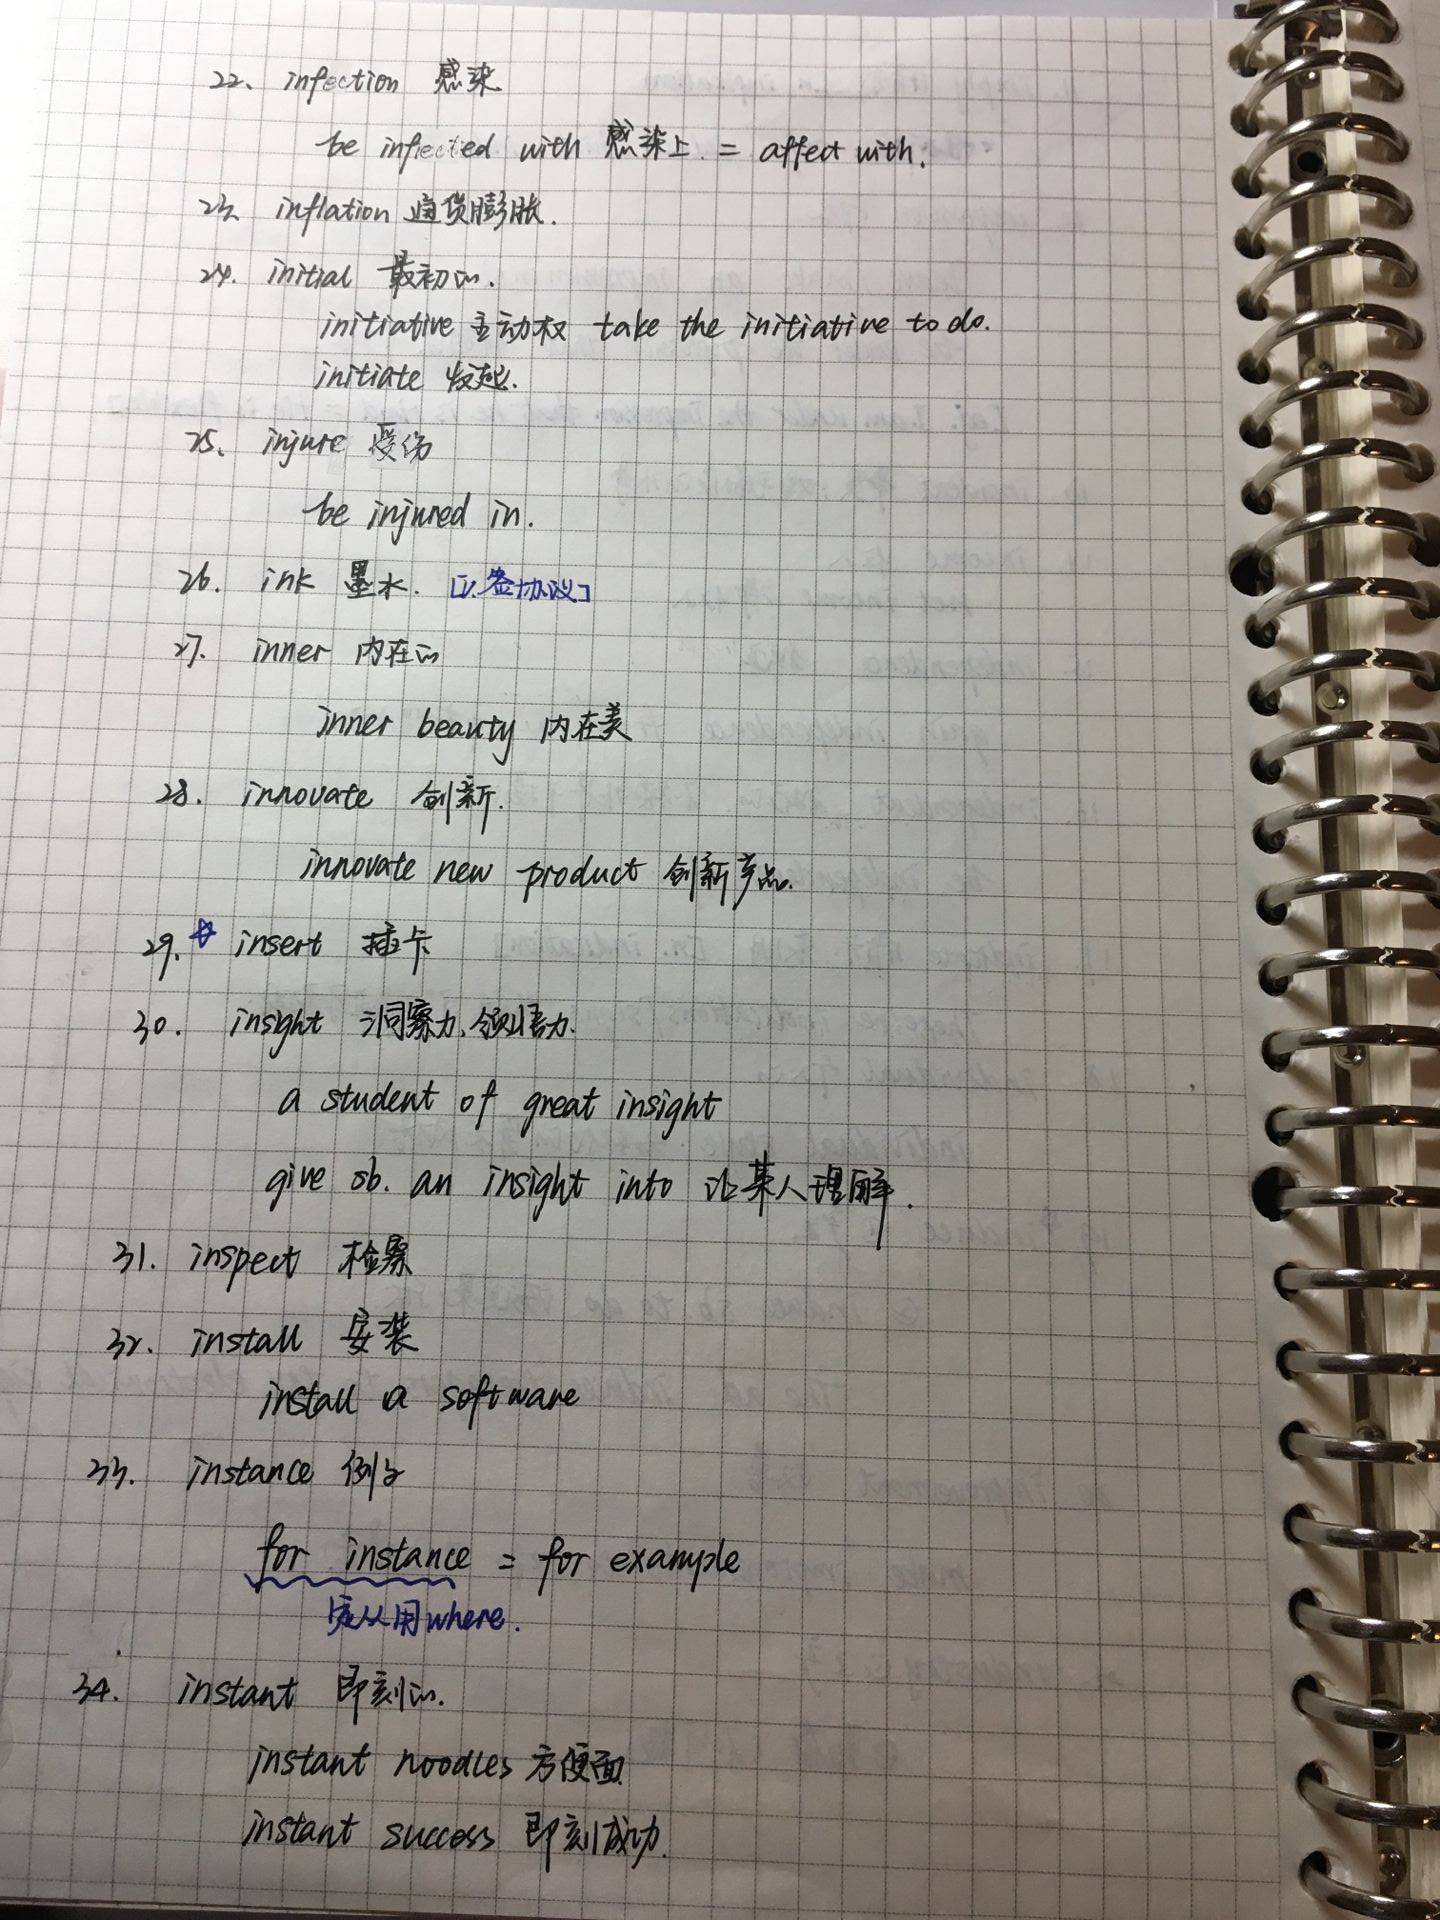 22、 infection 感染
be infected with 感染上 = affect with.
23、 inflation 通货膨胀.
24. initial 最初的.
initiative 主动权 take the initiative to do.
initiate 发起.
25、 injure 受伤
be injured in.
26. ink 墨水. [v.签协议]
27. inner 内在的
inner beauty 内在美
28. innovate 创新.
innovate new product 创新产品.
29. ☆ insert 插卡
30. insight 洞察力、领悟力.
a student of great insight
give sb. an insight into 让某人理解.
31. inspect 检察
32. install 安装
install a software
33. instance 例子
for instance = for example
定从用where.
34. instant 即刻的.
instant noodles 方便面
instant success 即刻成功.